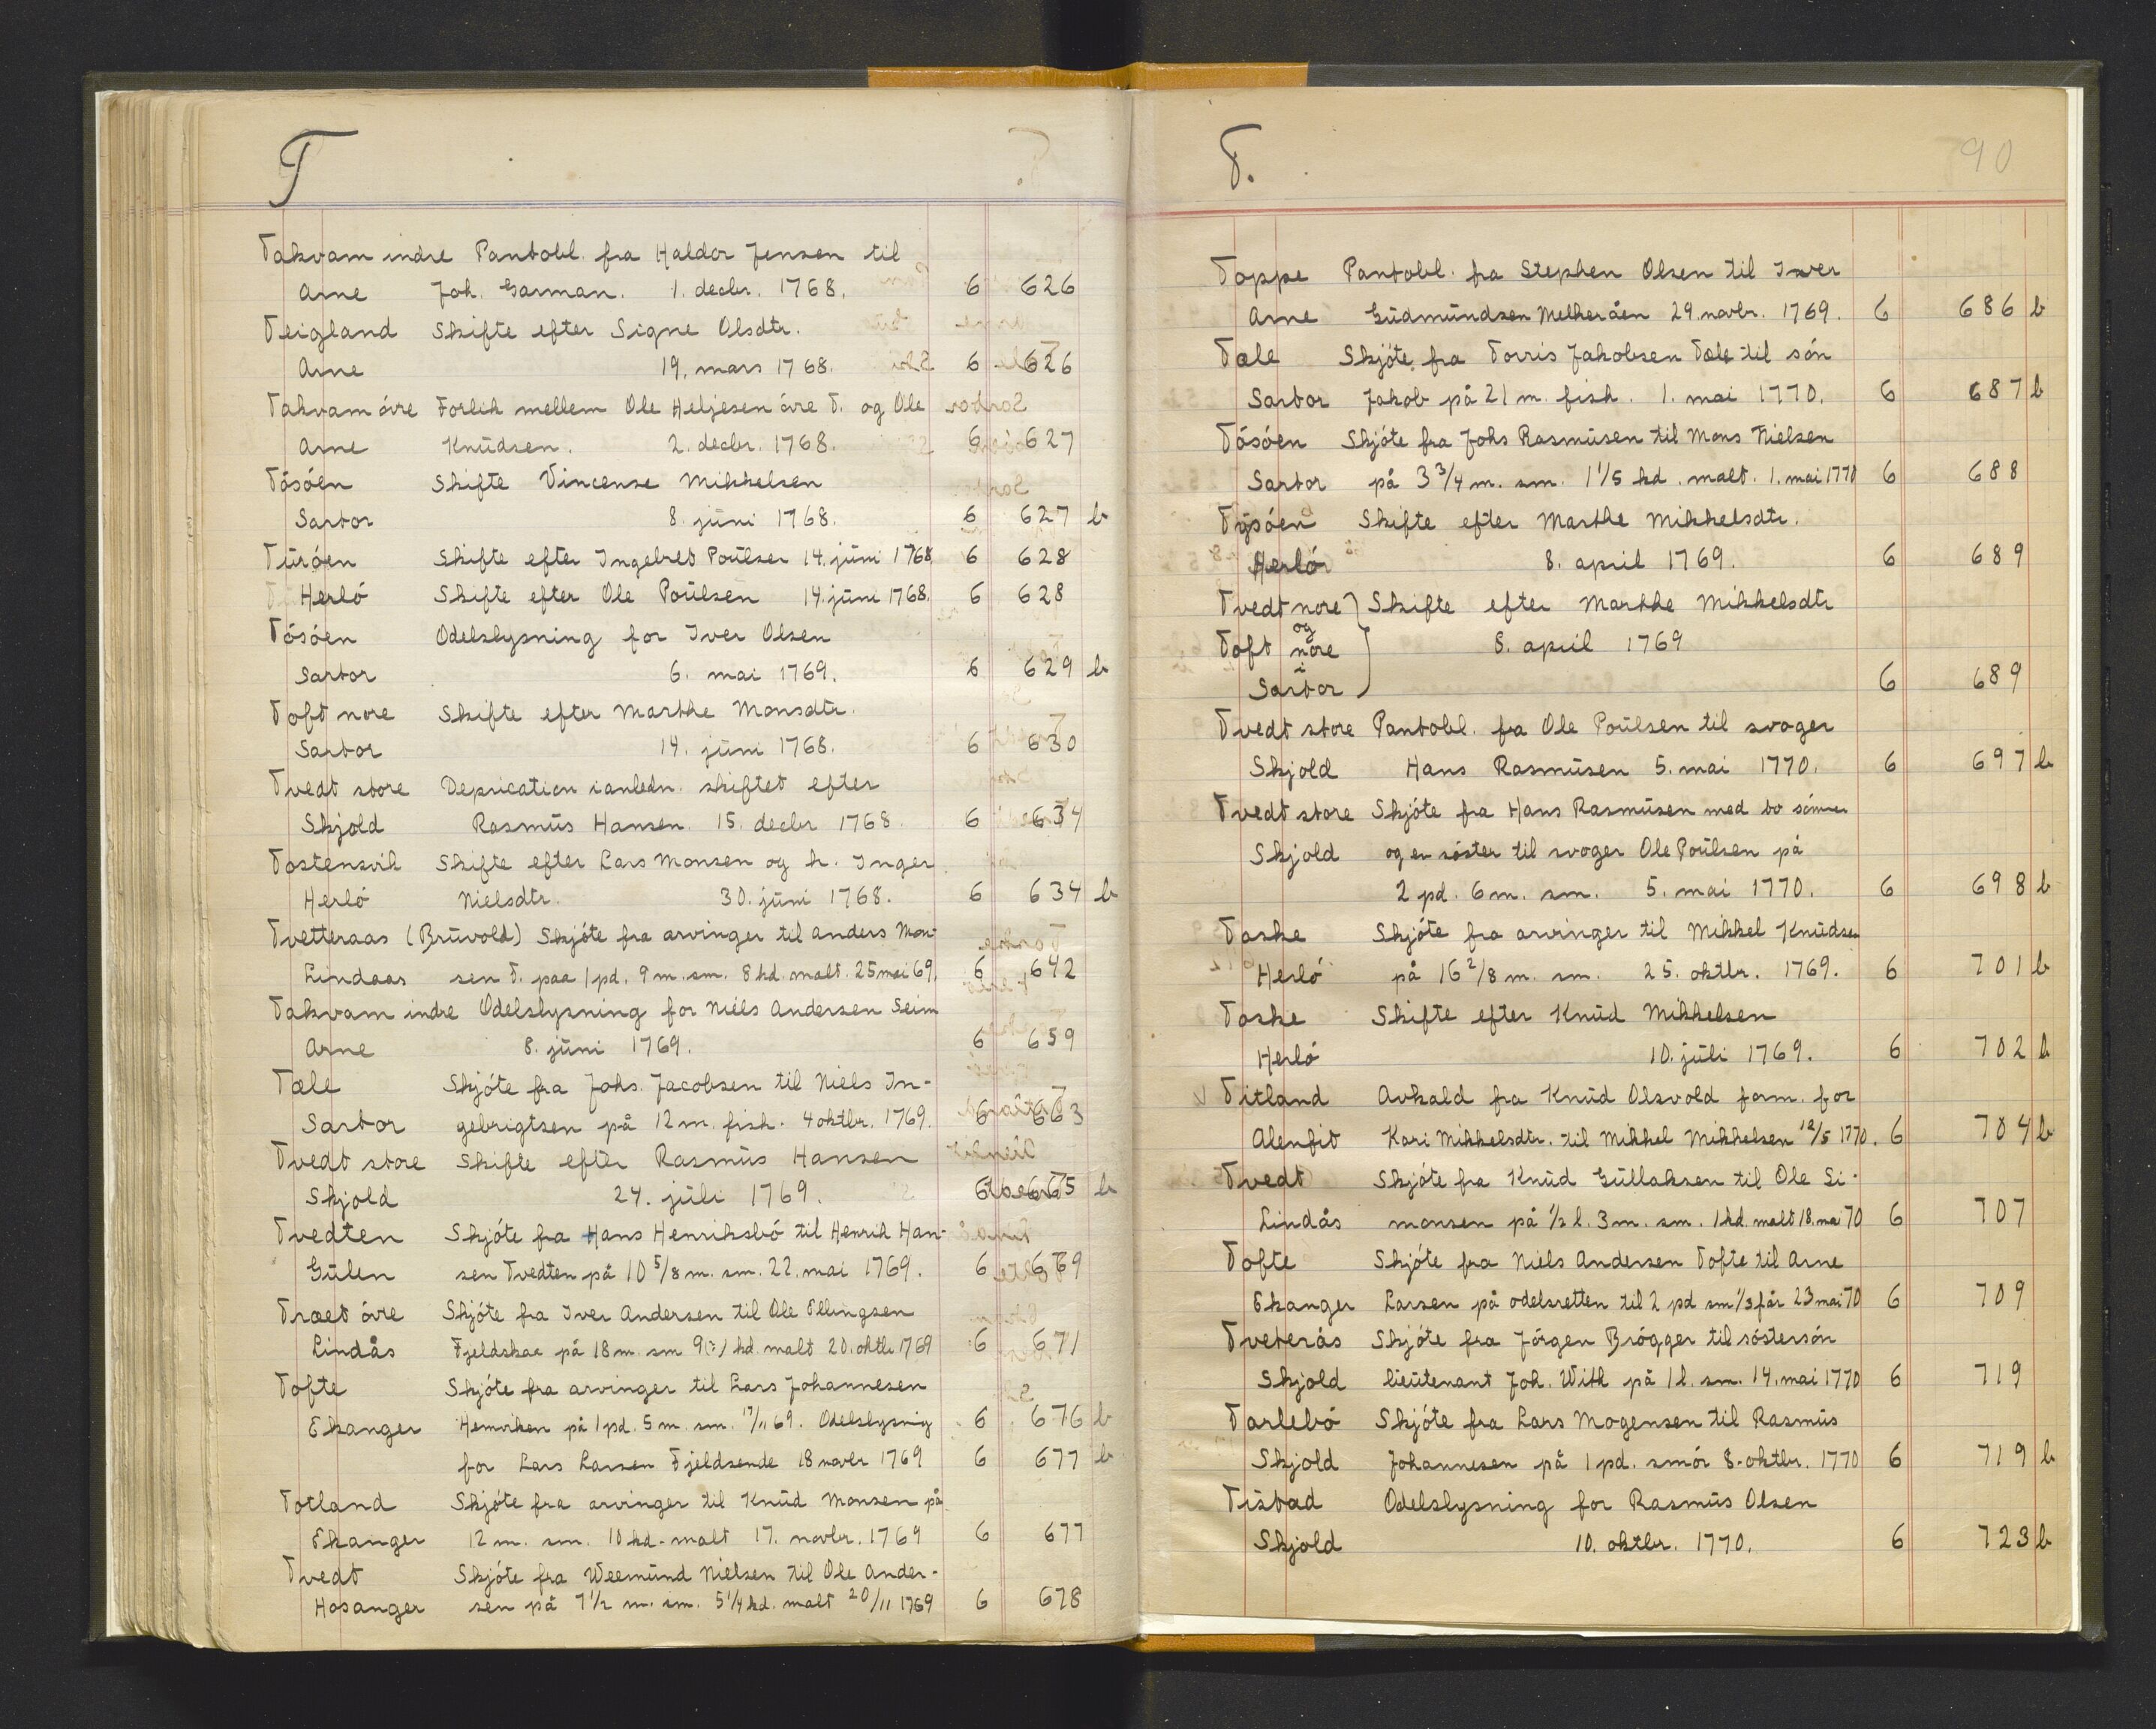 T
Takvam indre Pantobl. fra Haldor Jensen til
Arne Joh. Garman. 1. decbr. 1768. 6 626
Teigland Skifte efter Signe Olsdtr.
Arne 19. mars 1768. 6 626
Takvam övre Forlik mellem Ole Heljesen övre T. og Ole
Arne Knudsen. 2. decbr. 1768. 6 627
Tösöen Skifte Vincense Mikkelsen
Sartor 8. juni 1768. 6 627 b
Turöen Skifte efter Ingebret Poulsen 14. juni 1768 6 628
Herlö Skifte efter Ole Poulsen 14. juni 1768. 6 628
Tösöen Odelslysning for Iver Olsen
Sartor 6. mai 1769. 6 629 b
Toft nore Skifte efter Marthe Monsdtr.
Sartor 14. juni 1768. 6 630
Tvedt store Deprication ianledn. skiftet efter
Skjold Rasmus Hansen. 15. decbr 1768. 6 634
Tostensvik Skifte efter Lars Monsen og h. Inger
Herlö Nielsdtr. 30. juni 1768. 6 634 b
Tvetteraas (Bruvold) Skjöte fra arvinger til Anders Mon-
Lindaas sen T. paa 1 pd. 9 m. sm. 8 kd. malt. 25 mai 69. 6 642
Takvam indre Odelslysning for Niels Andersen Seim
Arne 8. juni 1769. 6 659
Tæle Skjöte fra Johs. Jacobsen til Niels In-
Sartor gebrigtsen på 12 m. fisk. 4 oktbr. 1769. 6 663
Tvedt store Skifte efter Rasmus Hansen
Skjold 24. juli 1769. 6 665 b
Tvedten Skjöte fra Hans Henriksbö til Henrik Han-
Gulen sen Tvedten på 10 5/8 m. sm. 22. mai 1769. 6 669
Træet övre Skjöte fra Iver Andersen til Ole Ellingsen
Lindås Fjeldskae på 18 m. sm kd. malt 20. oktbr 1769 6 671
Tofte Skjöte fra arvinger til Lars Johannesen
Ekanger Hemviken på 1 pd. 5 m. sm. 17/11 69. Odelslysnig 6 676 b
for Lars Larsen Fjeldsende 18 novbr 1769 6 677 b
Totland Skjöte fra arvinger til Knud Monsen på
Ekanger 12 m. sm. 10 kd. malt 17. novbr. 1769 6 677
Tvedt Skjöte fra Weemund Nielsen til Ole Ander-
Hosanger sen på 7 1/2 m. sm. 5 1/4 kd. malt 20/11 1769 6 678
T.
90
Toppe Pantobl. fra Stephen Olsen til Iver
Arne Gudmundsen Melheråen 29. novbr. 1769. 6 686 b
Tæle Skjöte fra Torris Jakobsen Tæle til sön
Sartor Jakob på 21 m. fisk. 1. mai 1770. 6 687 b
Tösöen Skjöte fra Johs Rasmusen til Mons Nielsen
Sartor på 3 3/4 m. sm. 1 1/5 kd. malt. 1. mai 1770 6 688
Tysöen Skifte efter Marthe Mikkelsdtr.
Herlö 8. april 1769. 6 689
Tvedt nore } Skifte efter Marthe Mikkelsdtr
og
Toft nore 8. april 1769
i
Sartor 6 689
Tvedt store Pantobl. fra Ole Poulsen til svoger
Skjold Hans Rasmusen 5. mai 1770. 6 697 b
Tvedt store Skjöte fra Hans Rasmusen med to sönner
Skjold og en söster til svoger Ole Poulsen på
2 pd. 6 m. sm. 5. mai 1770. 6 698 b
Toske Skjöte fra arvinger til Mikkel Knudsen
Herlö på 16 2/8 m. sm. 25. oktbr. 1769. 6 701 b
Toske Skifte efter Knud Mikkelsen
Herlö 10. juli 1769. 6 702 b
Titland Avkald fra Knud Olsvold form. for
Alenfit Kari Mikkelsdtr. til Mikkel Mikkelsen 12/5 1770. 6 704 b
Tvedt Skjöte fra Knud Gullaksen til Ole Si-
Lindås monsen på 1/2 l. 3 m. sm. 1 kd malt 18. mai 70 6 707
Tofte Skjöte fra Niels Andersen Tofte til Arne
Ekanger Larsen på odelsretten til 2 pd sm 1/3 får 23 mai 70 6 709
Tveterås Skjöte fra Jörgen Brögger til söstersön
Skjold lieutenant Joh. With på 1 l. sm. 14. mai 1770 6 719
Tarlebö Skjöte fra Lars Mogensen til Rasmus
Skjold Johannesen på 1 pd. smör 8. oktbr. 1770 6 719 b
Tistad Odelslysning for Rasmus Olsen
Skjold 10. oktbr. 1770. 6 723 b